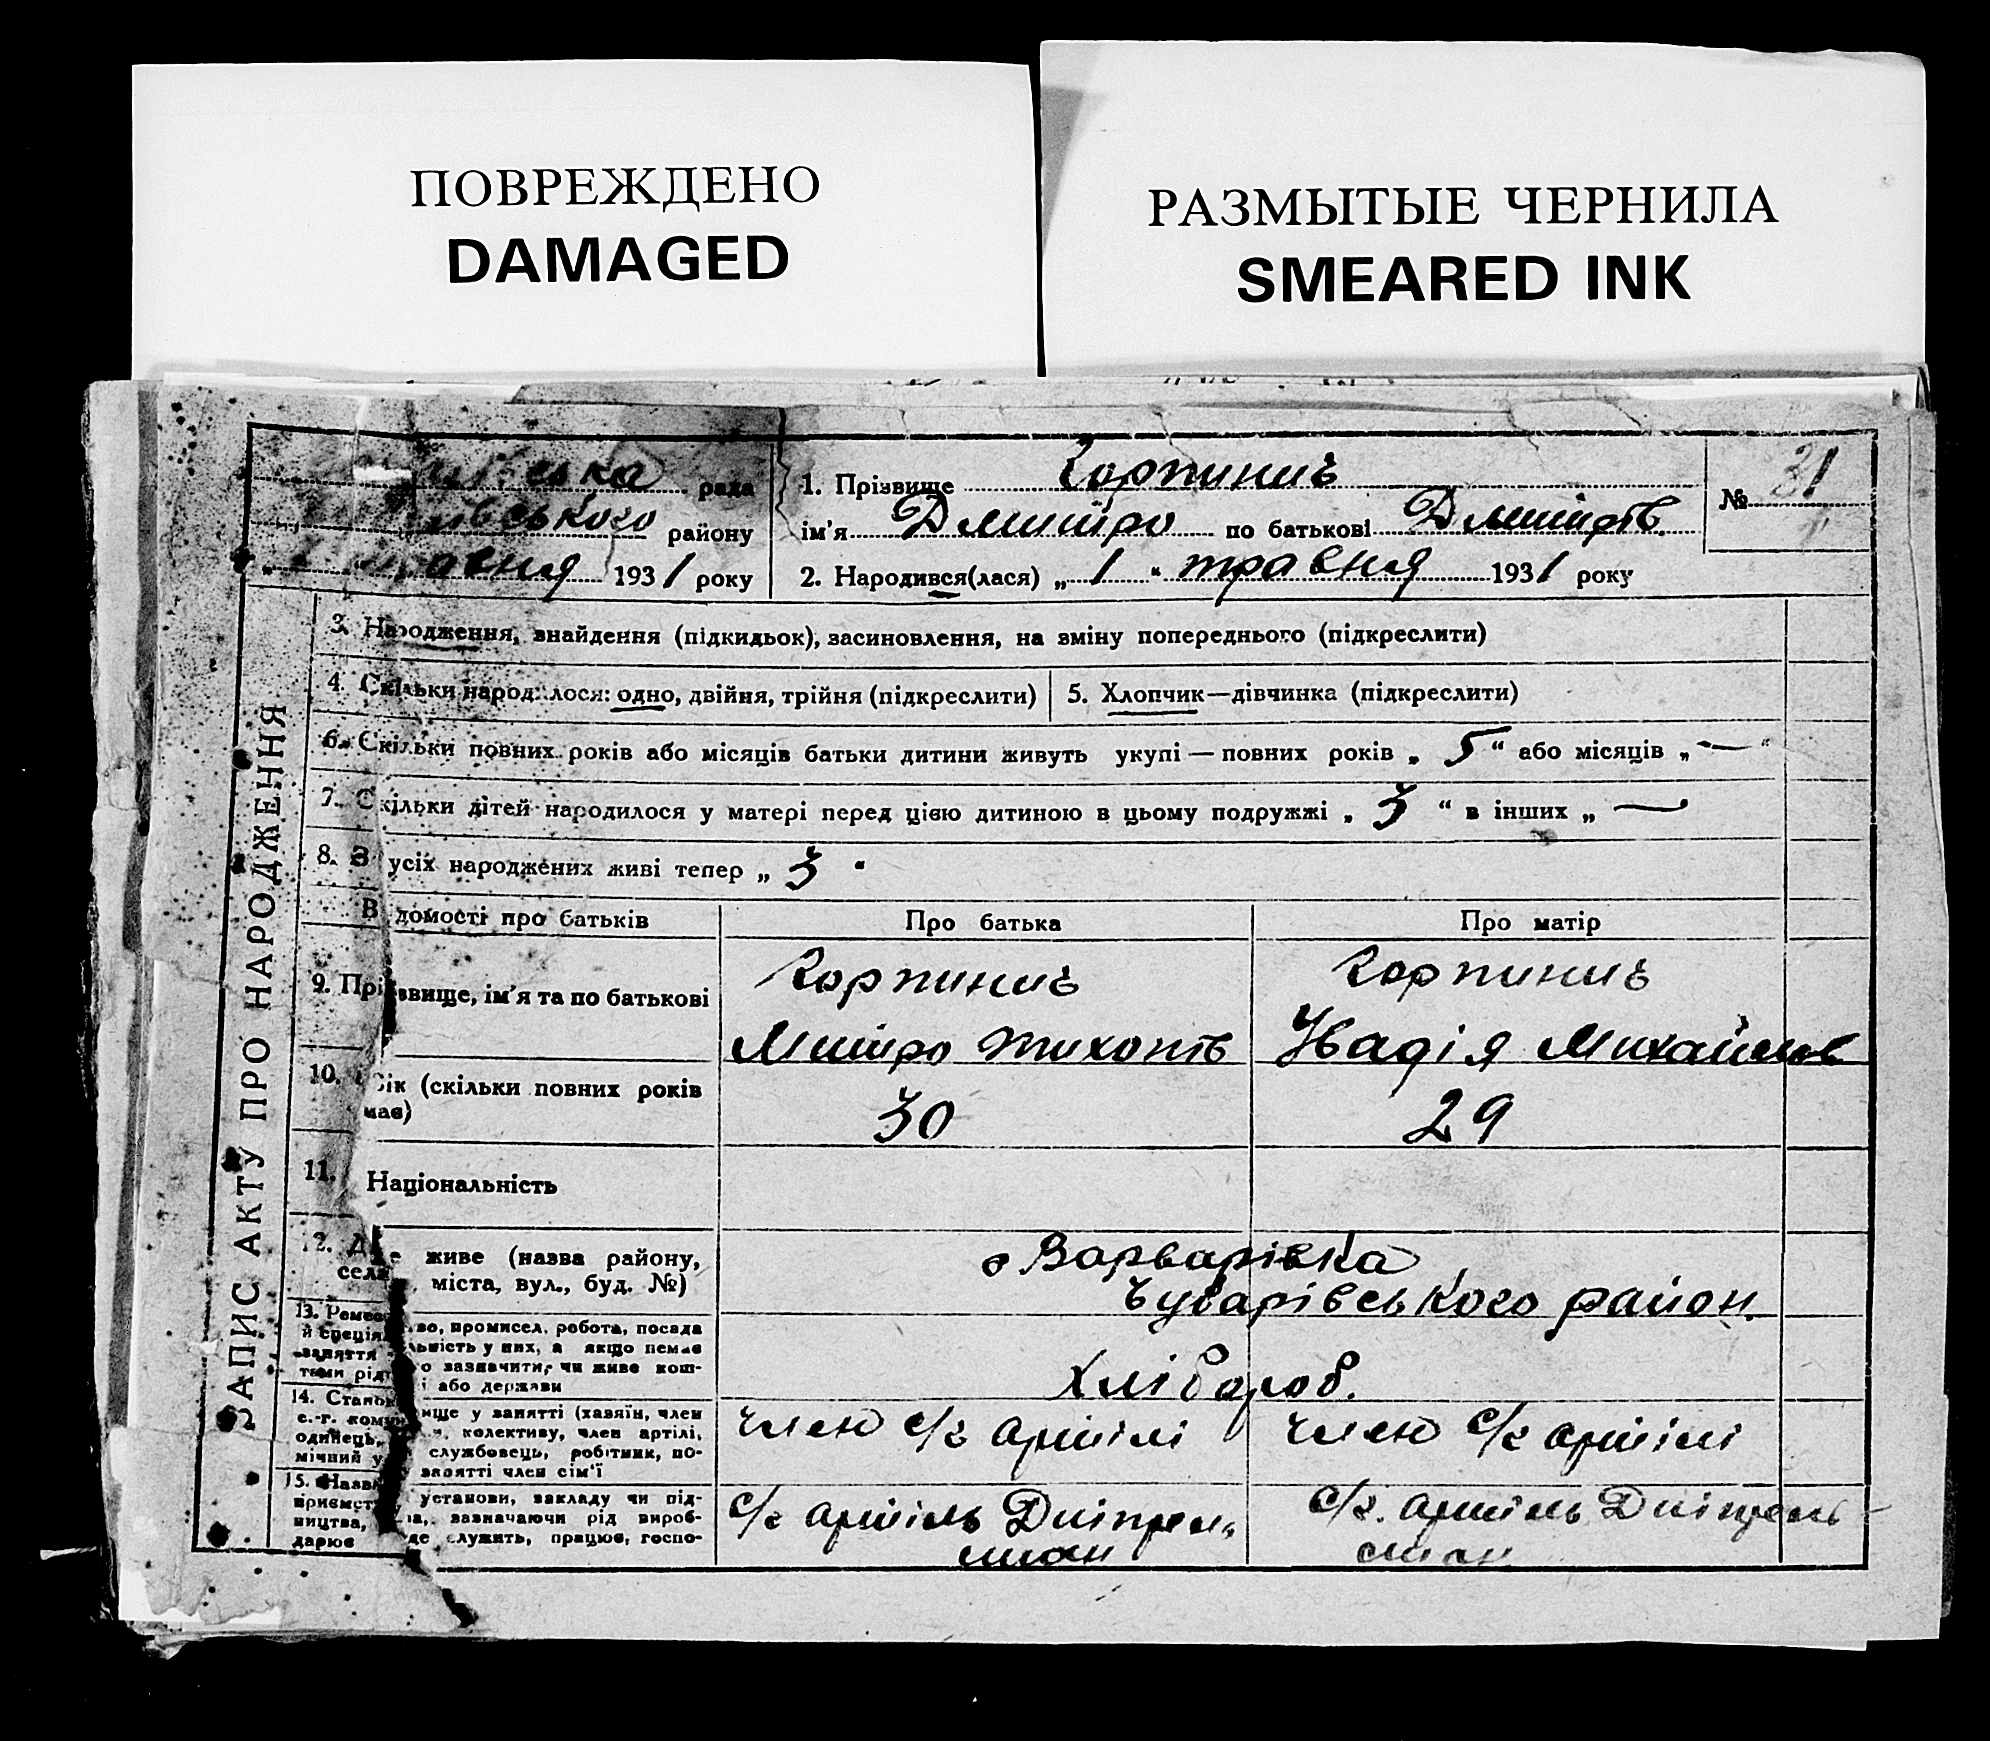 ПОВРЕЖДЕНО
DAMAGED
РАЗМЫТЫЕ ЧЕРНИЛА
SMEARED INK
рада
району
травня 1931 року
1. Прізвище Горпинич
ім'я Дмитро по батькові Дмитрів.
2. Народився(лася) „ 1 “ травня 1931 року
№ 31
ЗАПИС АКТУ ПРО НАРОДЖЕННЯ
3. Народження, знайдення (підкидьок), засиновлення, на зміну попереднього (підкреслити)
4. Скільки народилося: одно, двійня, трійня (підкреслити)
5. Хлопчик—дівчинка (підкреслити)
6. Скільки повних років або місяців батьки дитини живуть укупі — повних років „ 5 “ або місяців „ — “
7. Скільки дітей народилося у матері перед цією дитиною в цьому подружжі „ 3 “ в інших „ —
8. З усіх народжених живі тепер „ 3 “
Відомості про батьків
Про батька
Про матір
9. Прізвище, ім'я та по батькові
Горпинич
Митро Тихонів
Горпинич
Надія Михайлов
10. Вік (скільки повних років має)
30
29
11. Національність
12. Де живе (назва району,
села, міста, вул., буд. №)
с Варварівка
Чубарівського район.
13. Ремество, промисел, робота, посада
й спеціяльність у них, а якщо немає
заняття
зазначити, чи живе кош-
тами рідні або держави
Хлібороб.
14. Становище у занятті (хазяїн, член
с.-г. комуни, колективу, член артілі,
одинець, службовець, робітник, по-
мічний у занятті член сім'ї
член с/г артілі
член с/г артілі
15. Назва установи, закладу чи під-
приємства, зазначаючи рід вироб-
ництва, де служить, працює, госпо-
дарює
с/г артіль Дніпрель
стан
с/г. артіль Дніпрель
стан